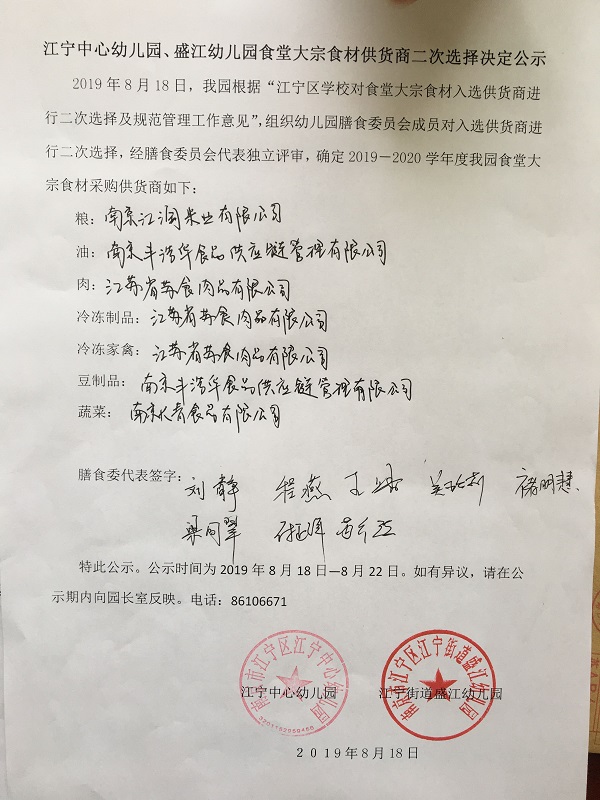 江宁中心幼儿园、盛江幼儿园食堂大宗食材供货商二次选择决定公示
2019年8月18日，我园根据“江宁区学校对食堂大宗食材入选供货商进
行二次选择及规范管理工作意见”，组织幼儿园膳食委员会成员对入选供货商进
行二次选择，经膳食委员会代表独立评审，确定2019－2020学年度我园食堂大
宗食材采购供货商如下：
粮：南京江润米业有限公司
油：南京丰浩华食品供应链管理有限公司
肉：江苏省苏食肉品有限公司
冷冻制品：江苏省苏食肉品有限公司
冷冻家禽：江苏省苏食肉品有限公司
豆制品：南京丰浩华食品供应链管理有限公司
蔬菜：南京长青食品有限公司
膳食委代表签字：刘静 程燕 褚明慧
特此公示。公示时间为2019年8月18日—8月22日。如有异议，请在公
示期内向园长室反映。电话：86106671
南京市江宁区江宁中心幼儿园
南京市江宁区江宁街道盛江幼儿园
江宁中心幼儿园 江宁街道盛江幼儿园
2019年8月18日